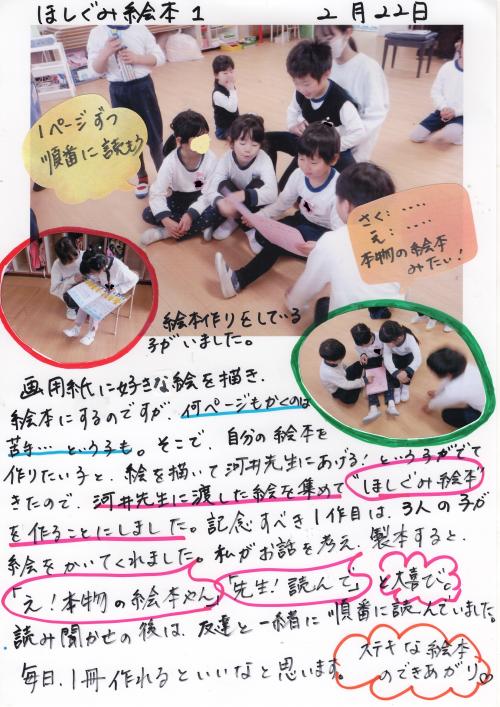 ほしぐみ絵本1 2月22日
1ページずつ
順番に読もう
さく:‥‥
え:‥‥
本物の絵本
みたい!
絵本作りをしている
子がいました。
画用紙に好きな絵を描き、
絵本にするのですが、何ページもかくのは
苦手…という子も。そこで、自分の絵本を
作りたい子と、絵を描いて河井先生にあげる!という子がでて
きたので、河井先生に渡した絵を集めて"ほしぐみ絵本"
を作ることにしました。記念すべき1作目は、3人の子が
絵をかいてくれました。私がお話を考え、製本すると、
「え!本物の絵本やん」「先生!読んで」と大喜び。
読み聞かせの後は、友達と一緒に順番に読んでいました。
毎日、1冊作れるといいなと思います。
ステキな絵本
のできあがり♡